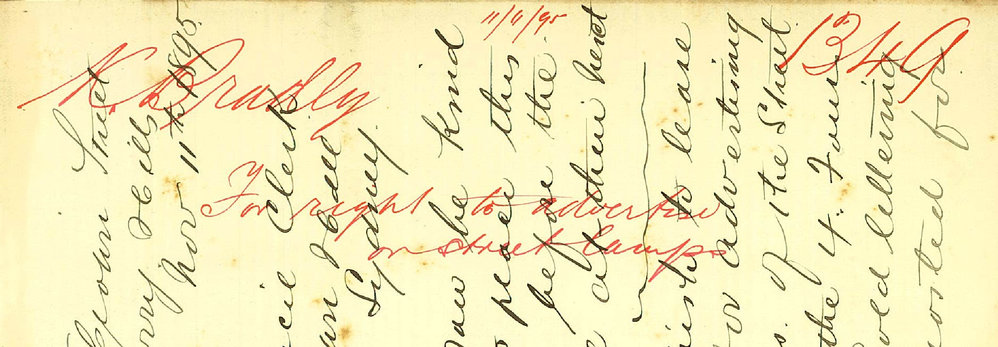 11/11/95
1349
K. Bradly
For right to advertise
on street lamps
Crown Street
Surry Hills
Nov 11th 1895
Clerk
Town Hall
Sydney.
be kind
place this
before the
at their next
to lease
for advertising
of the Street
the 4 Four
Gold lettering
posted for